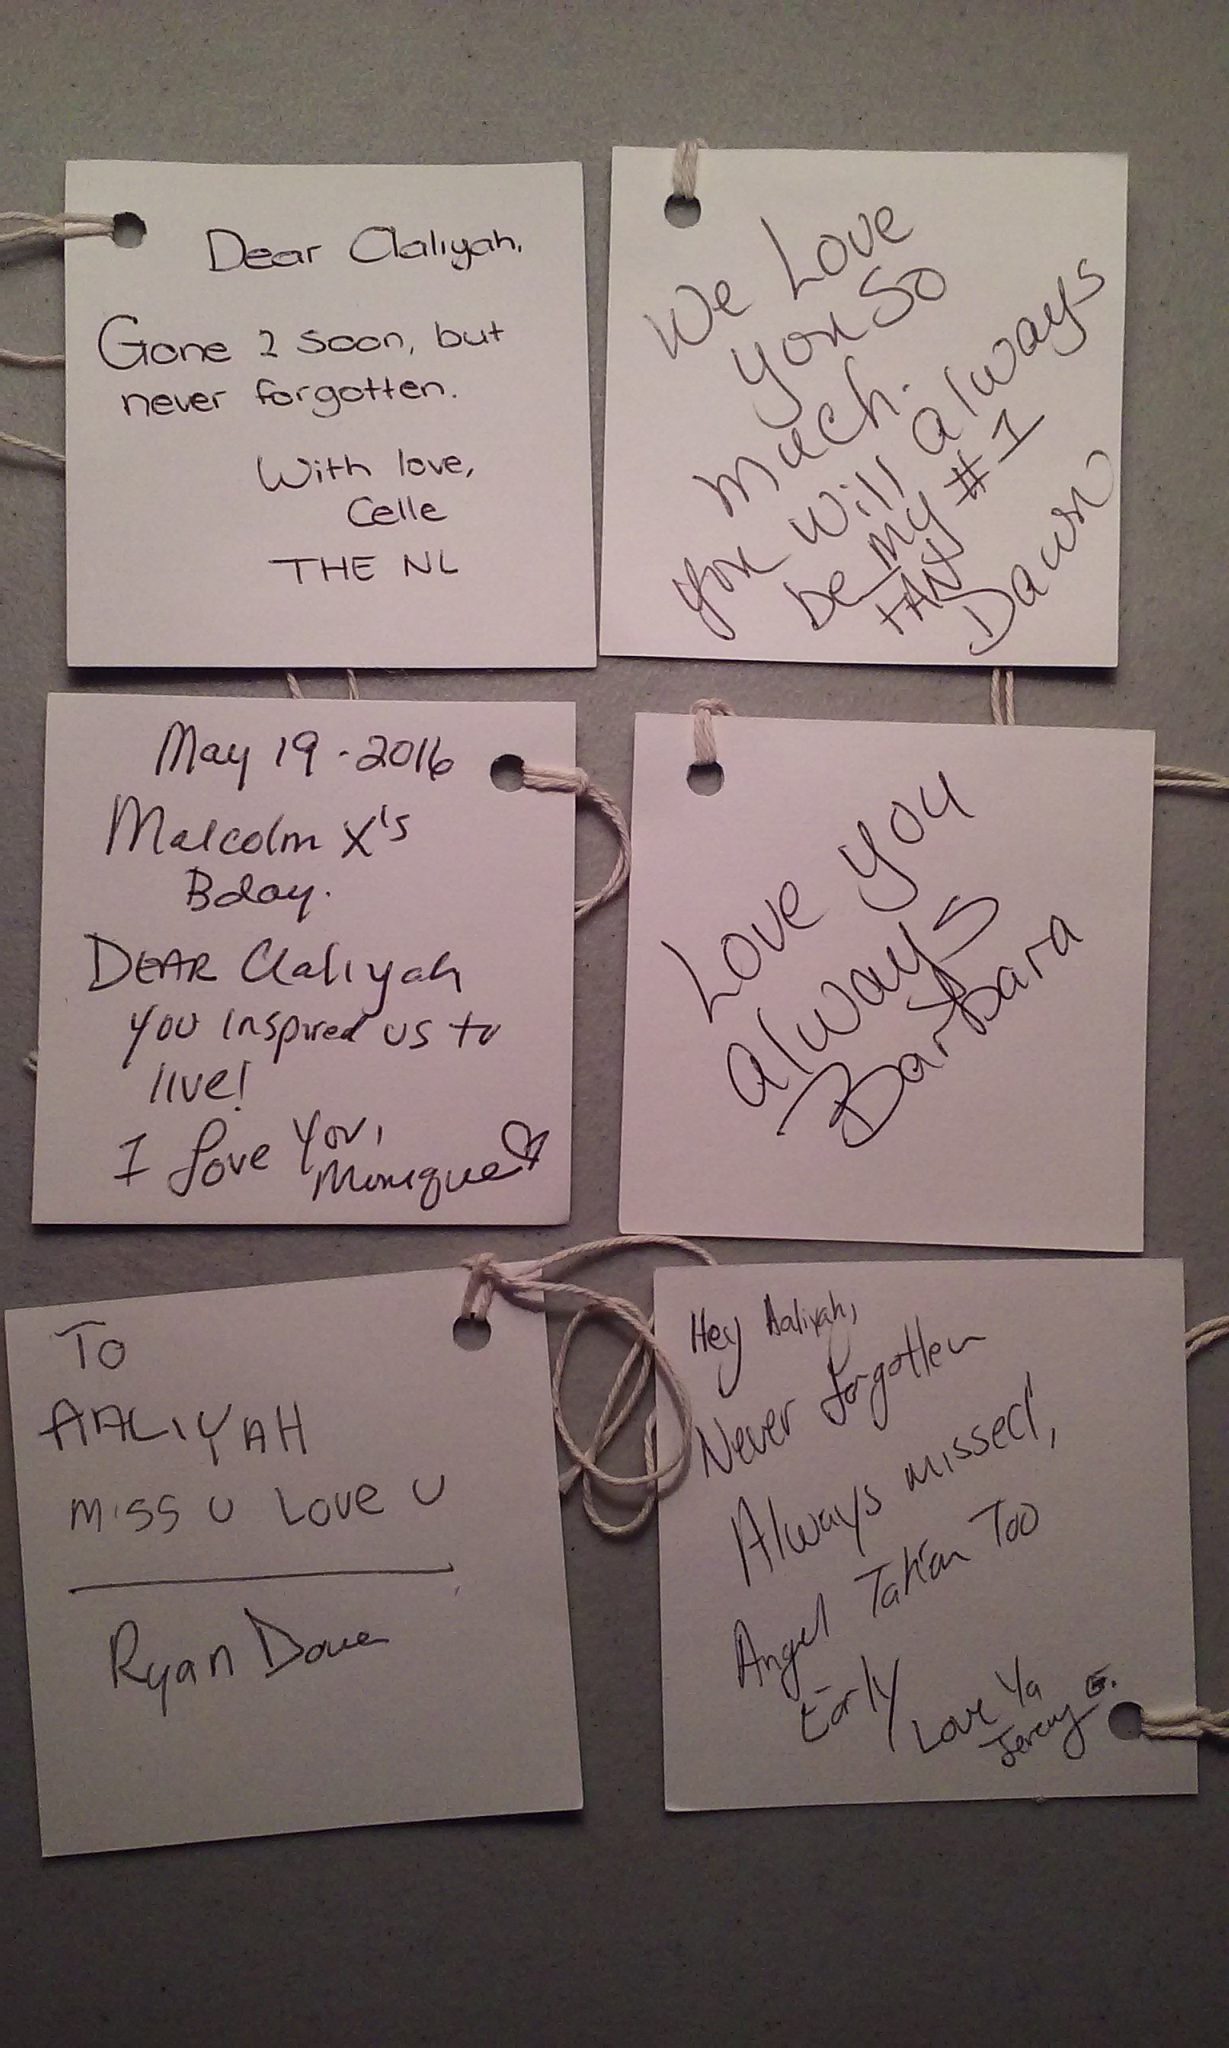 Dear Aaliyah,
Gone 2 soon, but
never forgotten.
With love,
Celle
THE NL
We Love
you So
much.
you will always
be my #1
FAN
Dawn
May 19-2016
Malcolm X's
Bday.
DEAR Aaliyah
you inspired us to
live!
I love you,
Monique
Love you
always
Barbara
To
AALIYAH
Miss U Love U
Ryan
Hey Aaliyah,
Never forgotten
Always missed,
Angel Takan Too
Early
Love Ya
Jeremy G.